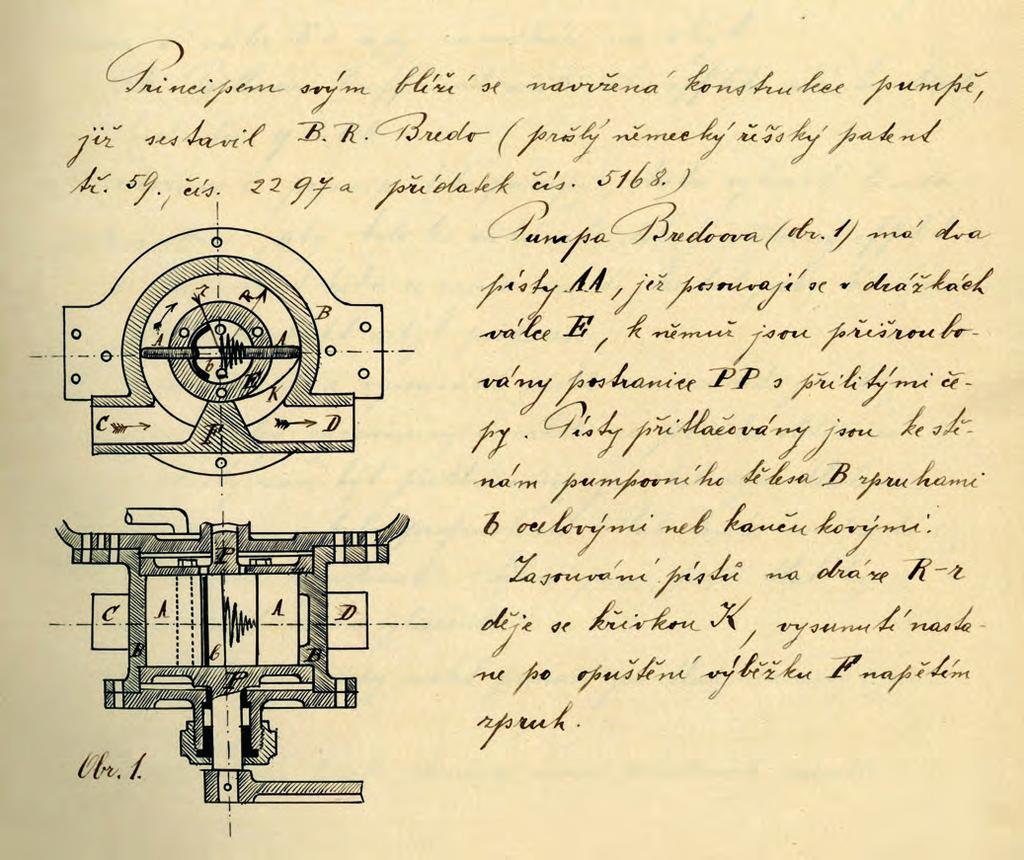 Principem svým blíží se navržená konstrukce pumpě,
již sestavil B. R. Bredo (prošlý německý říšský patent
tř. 59., čís. 2297 a přídatek čís. 5168.)
Pumpa Bredoova (obr. 1) má dva
písty AA, jež posouvají se v drážkách
válce E, k němuž jsou přišroubo-
vány postranice PP s přilitými če-
py. Písty přitlačovány jsou ke stě-
nám pumpovního tělesa B zpruhami
b ocelovými neb kaučukovými.
Zasouvání pístů na dráze R-r
děje se křivkou K, vysunutí nasta-
ne po opuštění výběžku F napětím
zpruh.
r
R
A
B
A
b
E
K
C
F
D
P
C
A
A
D
B
b
B
P
Obr. 1.